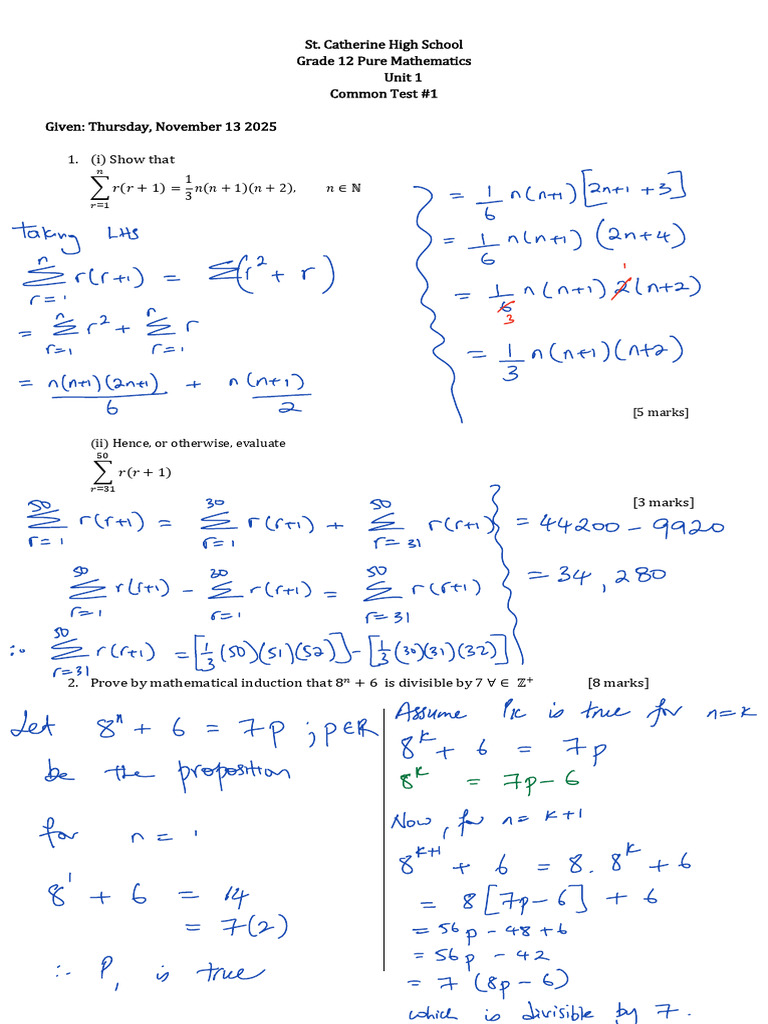 St. Catherine High School
Grade 12 Pure Mathematics
Unit 1
Common Test #1
Given: Thursday, November 13 2025
1. (i) Show that
∑_{r=1}^{n} r(r + 1) = 1/3 n(n + 1)(n + 2), n ∈ ℕ
Taking LHS
∑_{r=1}^{n} r(r+1) = ∑(r² + r)
= ∑_{r=1}^{n} r² + ∑_{r=1}^{r} r
= n(n+1)(2n+1)/6 + n(n+1)/2
= 1/6 n(n+1)[2n+1 +3]
= 1/6 n(n+1) (2n+4)
= 1/6 3 n(n+1) 2 1 (n+2)
= 1/3 n(n+1)(n+2)
[5 marks]
(ii) Hence, or otherwise, evaluate
∑_{r=31}^{50} r(r + 1)
[3 marks]
∑_{r=1}^{50} r(r+1) = ∑_{r=1}^{30} r(r+1) + ∑_{r=31}^{50} r(r+1)
∑_{r=1}^{50} r(r+1) - ∑_{r=1}^{30} r(r+1) = ∑_{r=31}^{50} r(r+1)
∴ ∑_{r=31}^{50} r(r+1) = [1/3 (50)(51)(52)] - [1/3 (30)(31)(32)]
= 44200 - 9920
= 34,280
2. Prove by mathematical induction that 8ⁿ + 6 is divisible by 7 ∀ ∈ ℤ⁺ [8 marks]
Let 8ⁿ + 6 = 7p ; p∈R
be the proposition
for n = 1
8¹ + 6 = 14
= 7(2)
∴ P₁ is true
Assume Pₖ is true for n=k
8ᵏ + 6 = 7p
8ᵏ = 7p - 6
Now, for n= k+1
8ᵏ⁺¹ + 6 = 8. 8ᵏ + 6
= 8[7p - 6] + 6
= 56p - 48 + 6
= 56p - 42
= 7 (8p - 6)
which is divisible by 7.